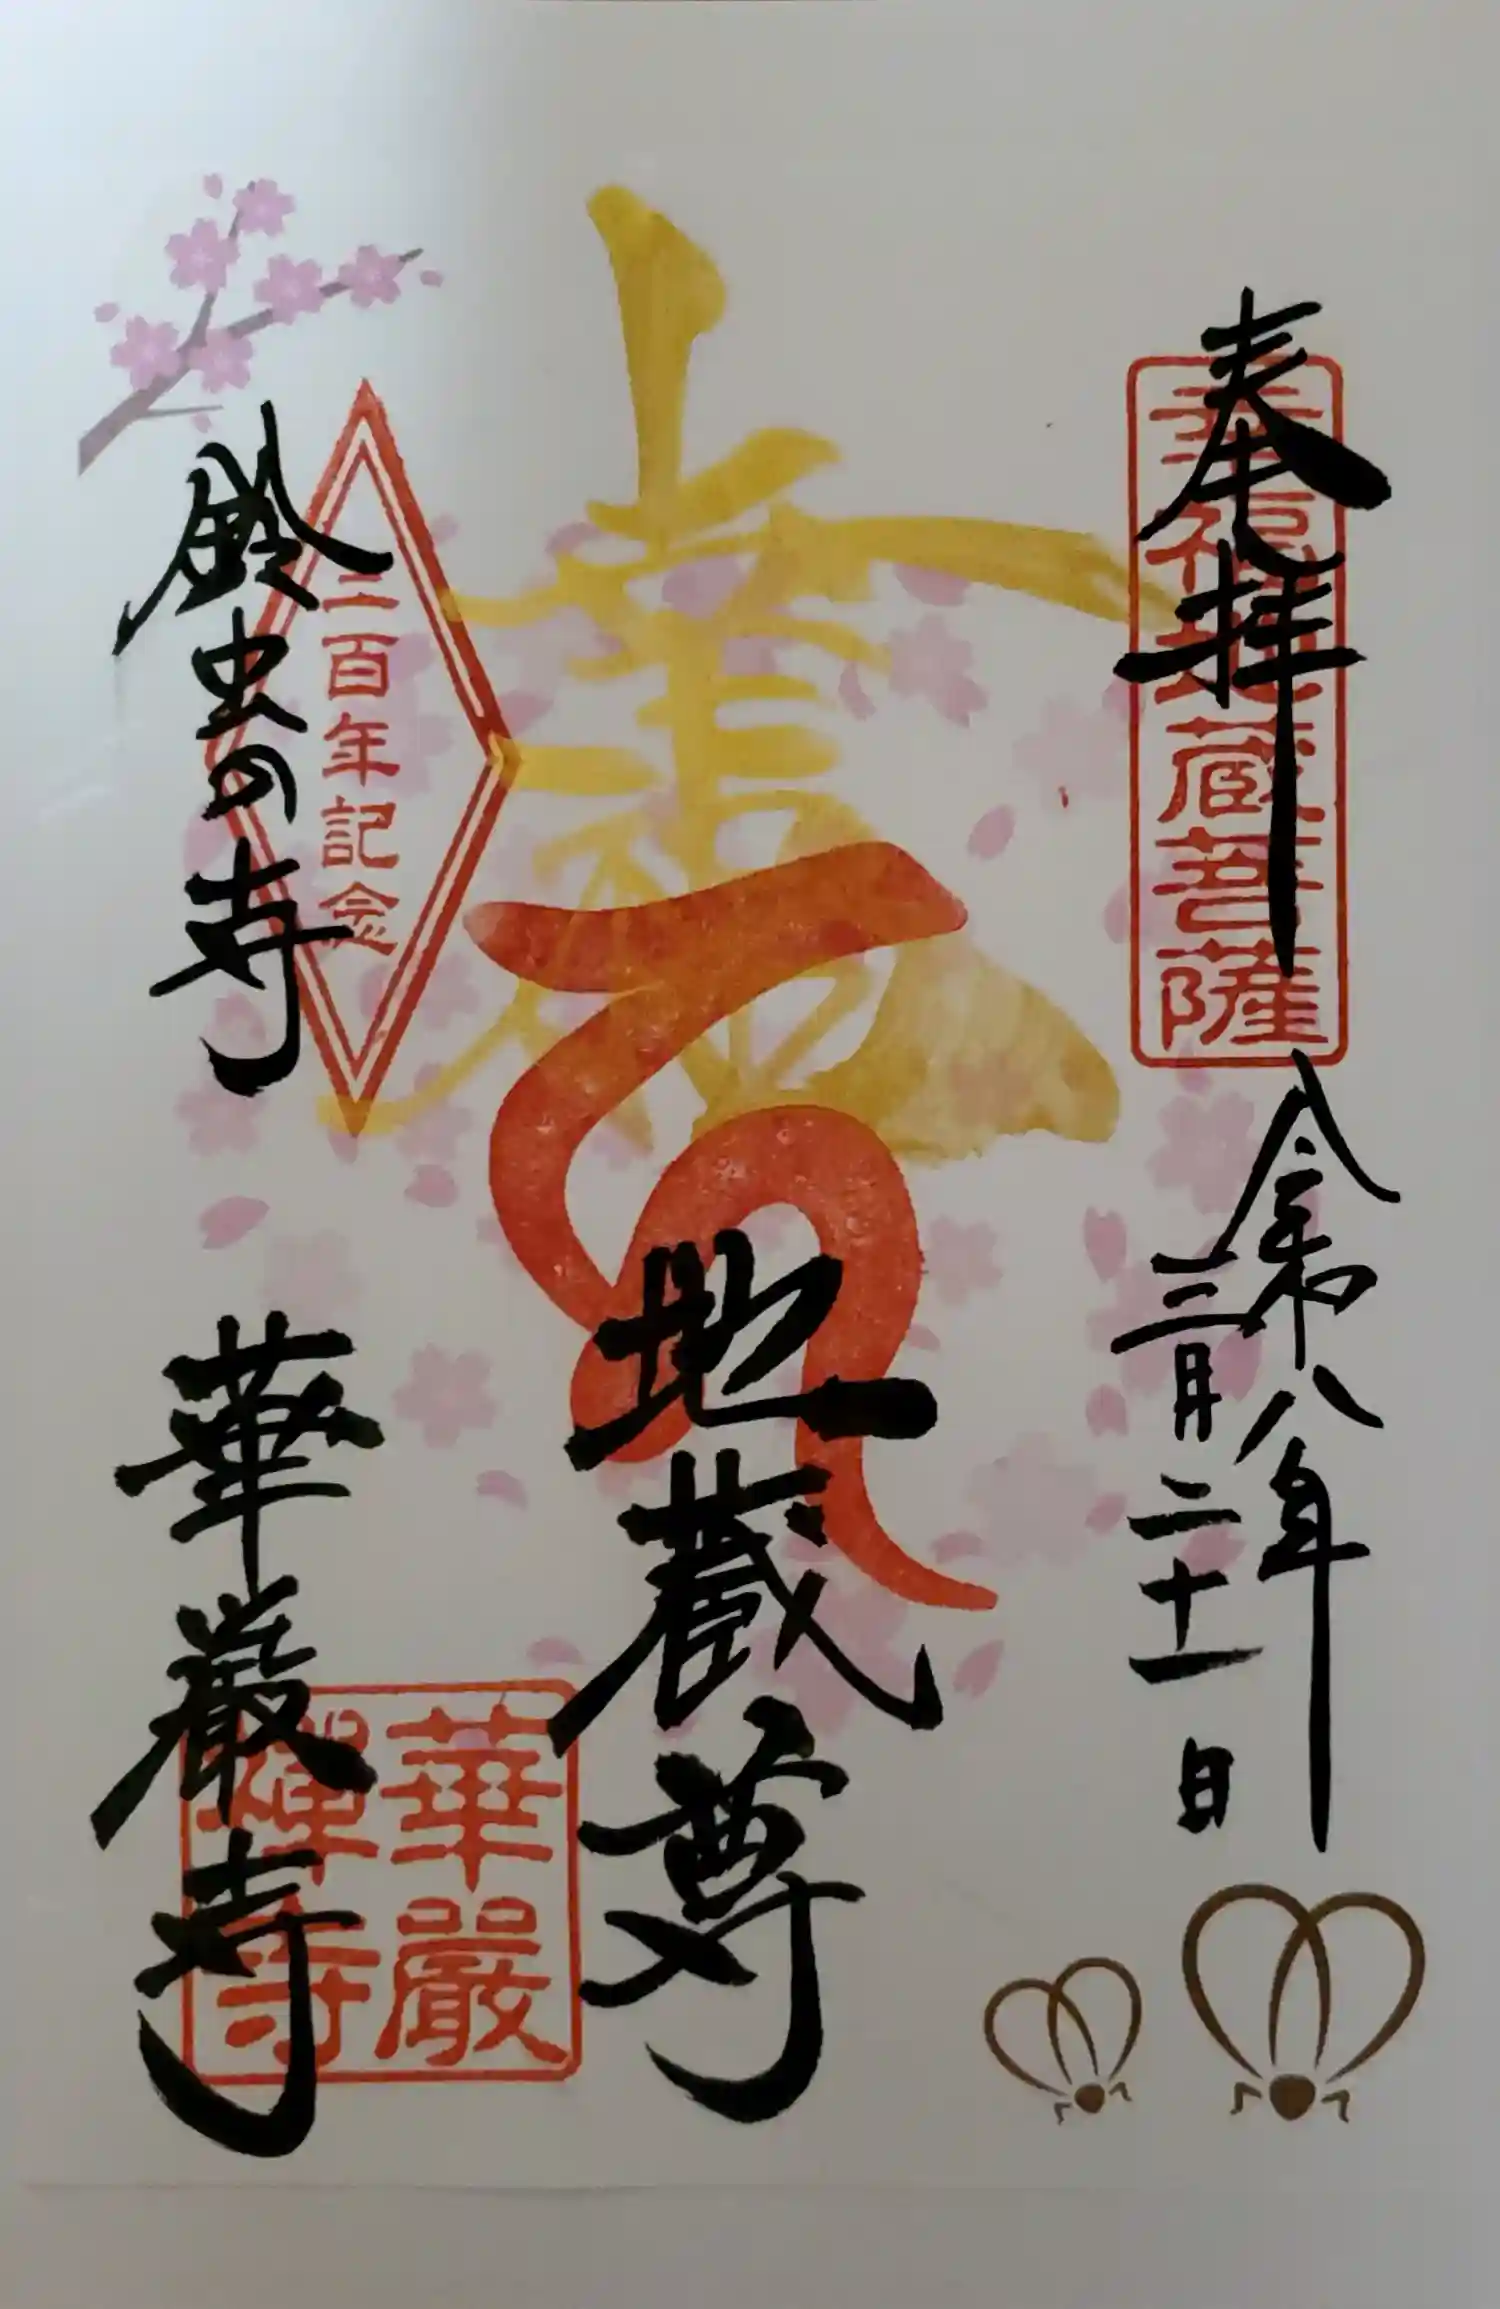 奉拝
幸福地蔵菩薩
令和八年
三月二十一日
地蔵尊
三百年記念
鈴虫の寺
華厳寺
華嚴
禪寺